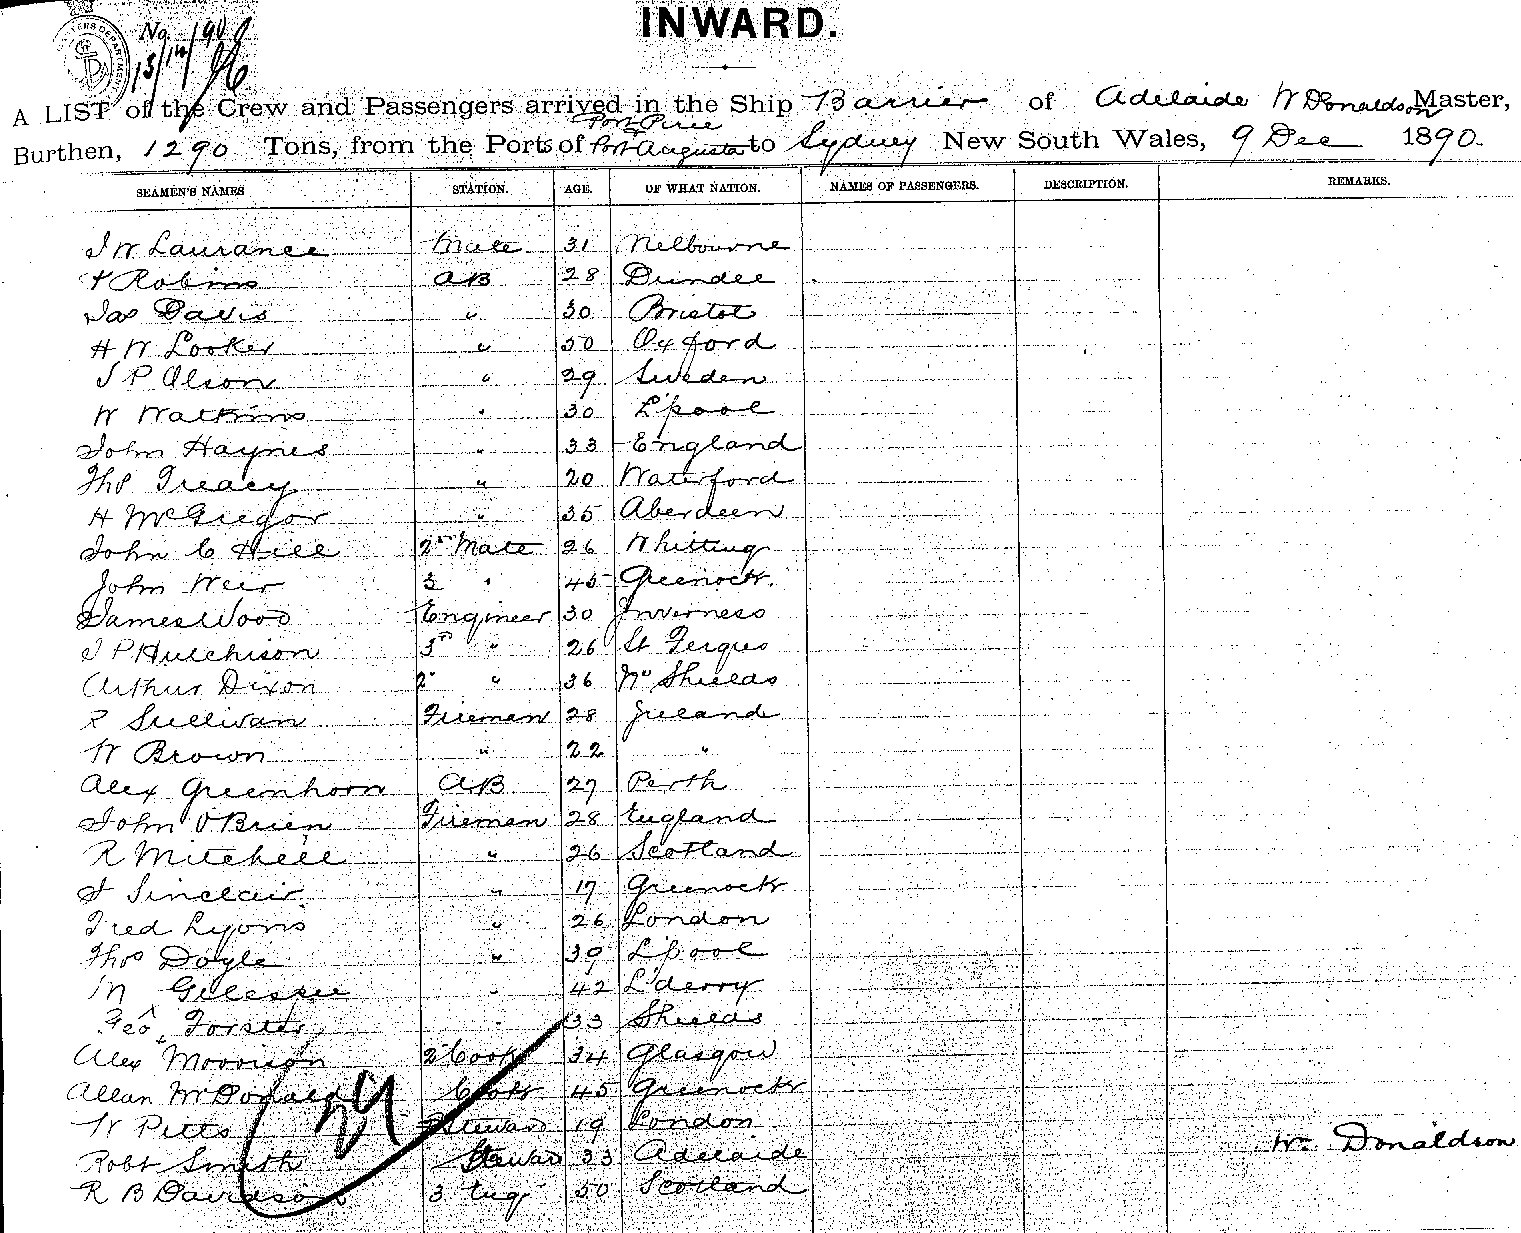 INWARD.
No 908
13/12/90
A LIST of the Crew and Passengers arrived in the Ship Barrier of Adelaide W Donaldson Master,
Port Pirie
Burthen, 1290 Tons, from the Ports of Port Augusta to Sydney New South Wales, 9 Dec 1890.
SEAMEN'S NAMES STATION. AGE. OF WHAT NATION. NAMES OF PASSENGERS. DESCRIPTION. REMARKS.
J W Laurance Mate 31 Melbourne
Robins AB 28 Dundee
Jas Davis " 30 Bristol
H W Looker " 30 Oxford
J P Olson " 29 Sweden
W Watkins " 30 L'pool
John Haynes " 33 England
Thos Treacy " 20 Waterford
H McGregor " 35 Aberdeen
John C Hill 2nd Mate 26 Whitting
John Weir 3 " 45 Greenock
James Wood Engineer 30 Inverness
J P Hutchison 3rd " 26 St Fergus
Arthur Dixon 2 " 36 No Shields
R Sullivan Fireman 28 Ireland
W Brown " 22 "
Alex Greenhorn AB 27 Perth
John O'Brien Fireman 28 England
R Mitchell " 26 Scotland
J Sinclair " 17 Greenock
Fred Lyons " 26 London
Thos Doyle " 39 L'pool
M Gillespie " 42 L'derry
Geo Forster " 33 Shields
Alex Morrison 2 Cook 34 Glasgow
Allan McDonald Cook 45 Greenock
W Pitts 2 Steward 19 London
Robt Smith Steward 33 Adelaide
Wm Donaldson
R B Davidson 3 Eng 50 Scotland
29